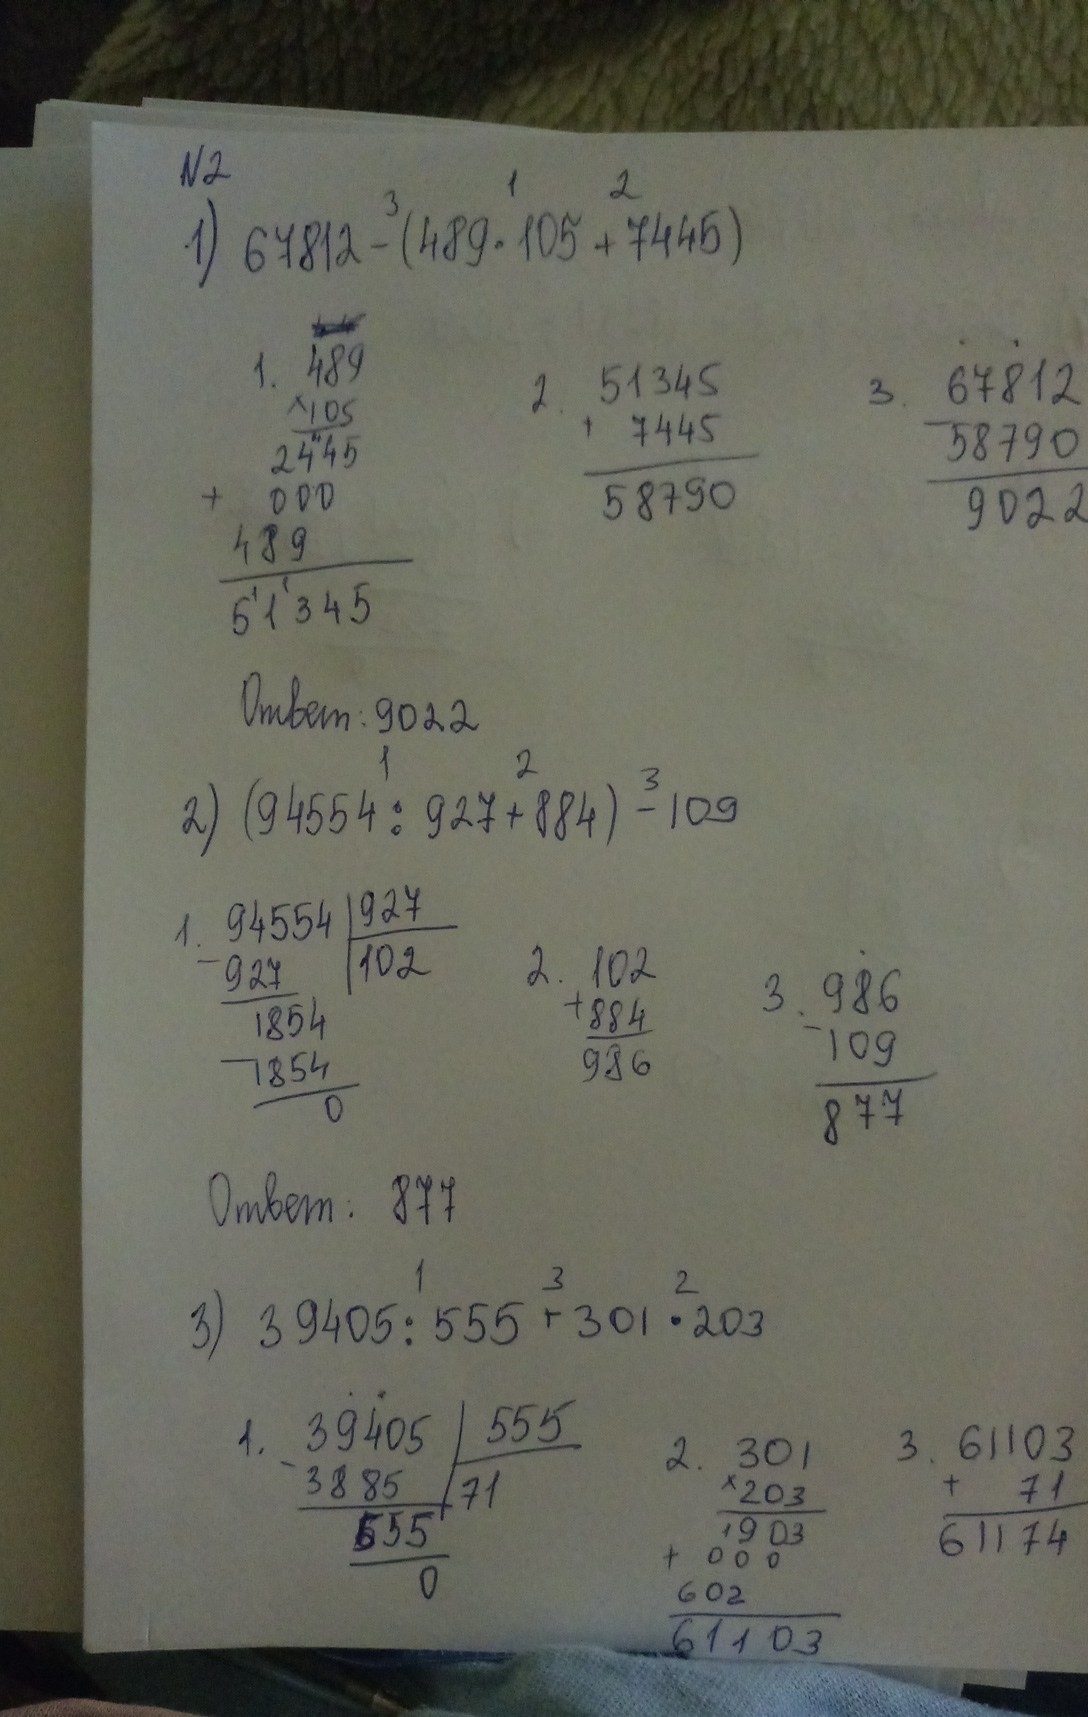 N2
1) 67812-(489·105+7445)
3 1 2
1. 489
×105
2445
+ 000
489
51345
2. 51345
+ 7445
58790
3. 67812
- 58790
9022
Ответ: 9022
1 2 3
2) (94554:927+884)-109
1. 94554 | 927
-927 | 102
1854
-1854
0
2. 102
+884
986
3. 986
-109
877
Ответ: 877
1 3 2
3) 39405:555+301·203
1. 39405 | 555
-3885 | 71
555
0
2. 301
×203
1903
+ 000
602
61103
3. 61103
+ 71
61174